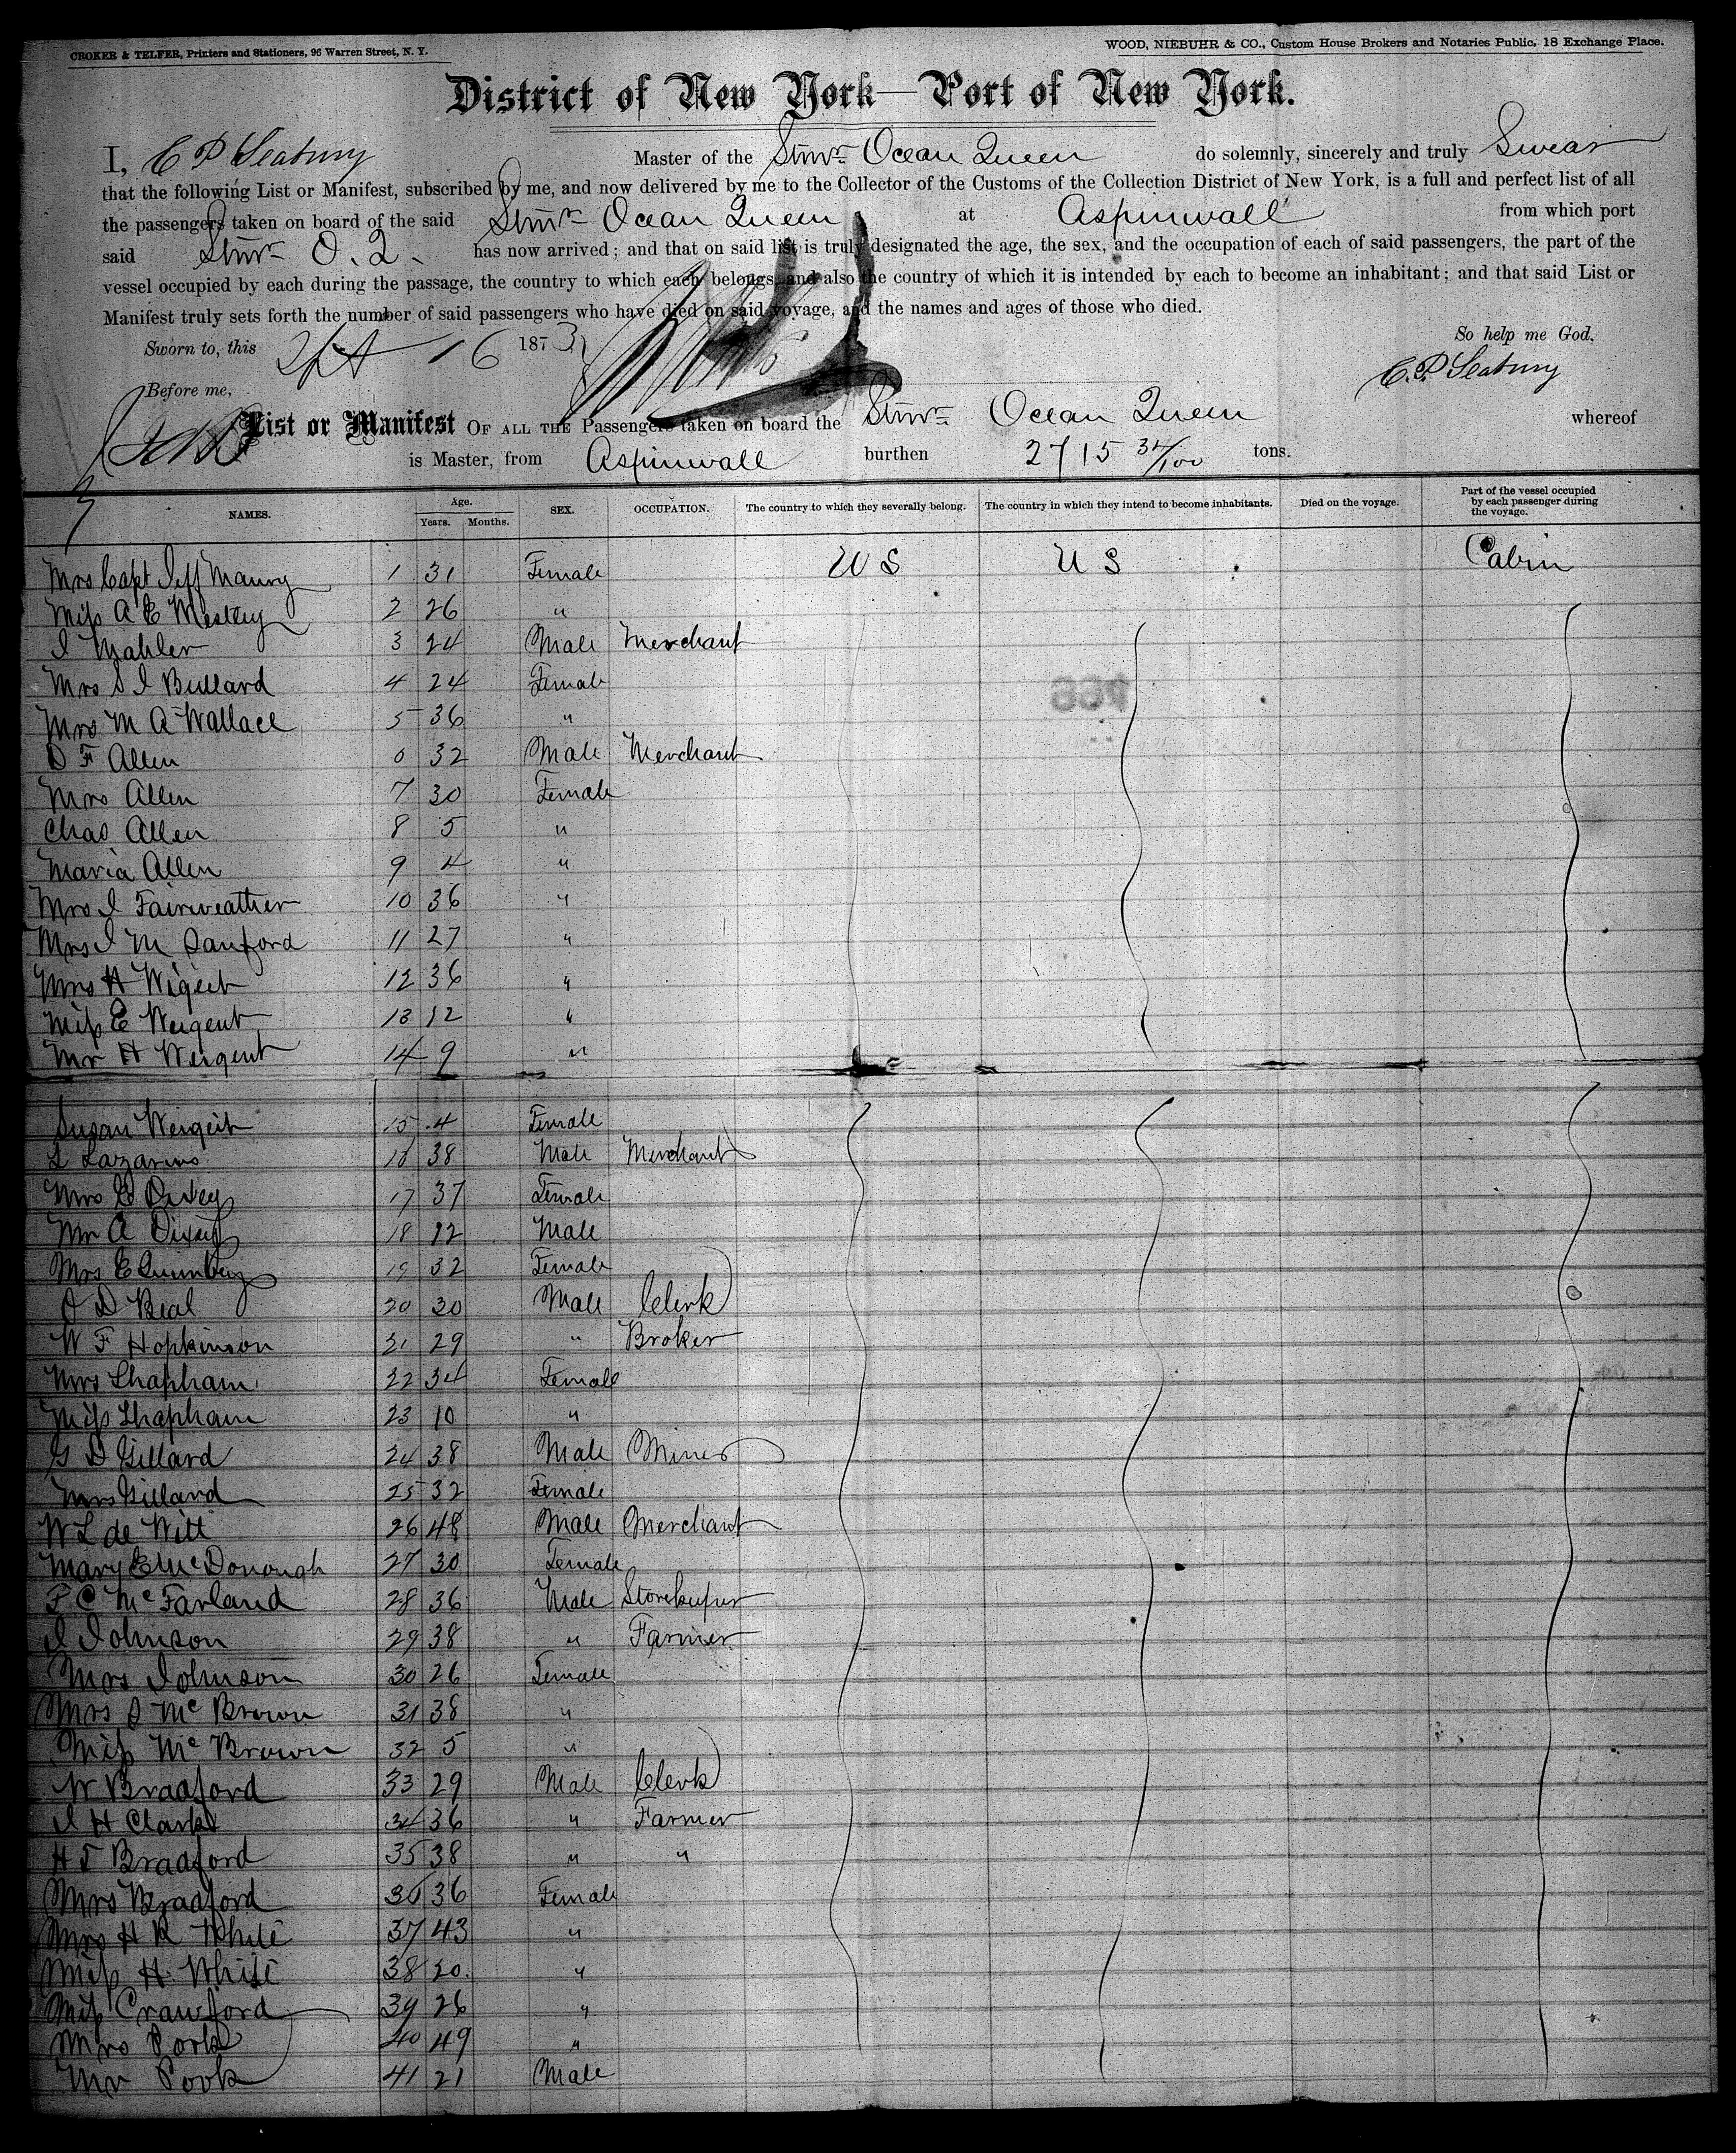 CROKER & TELFER, Printers and Stationers, 96 Warren Street, N. Y.
WOOD, NIEBUHR & CO., Custom House Brokers and Notaries Public, 18 Exchange Place.
District of New York—Port of New York.
I, C P Seabury Master of the Stmr Ocean Queen do solemnly, sincerely and truly Swear
that the following List or Manifest, subscribed by me, and now delivered by me to the Collector of the Customs of the Collection District of New York, is a full and perfect list of all
the passengers taken on board of the said Stmr Ocean Queen at Aspinwall from which port
said Stmr O. Q. has now arrived; and that on said list is truly designated the age, the sex, and the occupation of each of said passengers, the part of the
vessel occupied by each during the passage, the country to which each belongs, and also the country of which it is intended by each to become an inhabitant; and that said List or
Manifest truly sets forth the number of said passengers who have died on said voyage, and the names and ages of those who died.
So help me God.
Sworn to, this Spt 16 1873
C. P Seabury
Before me,
List or Manifest OF ALL THE Passengers taken on board the Stmr Ocean Queen whereof
is Master, from Aspinwall burthen 2715 34/100 tons.
NAMES. Age. Years. Months. SEX. OCCUPATION. The country to which they severally belong. The country in which they intend to become inhabitants. Died on the voyage. Part of the vessel occupied by each passenger during the voyage.
Mrs Capt Jeff Maury 1 31 Female U S U S Cabin
Miss A E Mestley 2 26 "
I Mahler 3 24 Male Merchant
Mrs S I Bullard 4 24 Female
Mrs M A Wallace 5 36 "
D F Allen 6 32 Male Merchant
Mrs Allen 7 30 Female
Chas Allen 8 5 "
Maria Allen 9 4 "
Mrs I Fairweather 10 36 "
Mrs I M Sanford 11 27 "
Mrs H Wigeet 12 36 "
Miss E Weigent 13 12 "
Mr H Weigent 14 9 "
Susan Weigeit 15 4 Female
L Lazarino 16 38 Male Merchant
Mrs E Dixey 17 37 Female
Mr A Dixey 18 12 Male
Mrs E Quimbey 19 32 Female
D Beal 20 30 Male Clerk
W F Hopkinson 21 29 " Broker
Mrs Lhapham 22 34 Female
Miss Lhapham 23 10 "
G D Gillard 24 38 Male Miner
Mrs Gillard 25 32 Female
W L de Witt 26 48 Male Merchant
Mary E McDonough 27 30 Female
F C McFarland 28 36 Male Storekeeper
I Johnson 29 38 " Farmer
Mrs Johnson 30 26 Female
Mrs J Mc Brown 31 38 "
Miss Mc Brown 32 5 "
W Bradford 33 29 Male Clerk
I H Clark 34 36 " Farmer
H T Bradford 35 38 " "
Mrs Bradford 36 36 Female
Mrs H R White 37 43 "
Miss H White 38 20. "
Miss Crawford 39 26 "
Mrs Pook 40 49 "
Mr Pook 41 21 Male